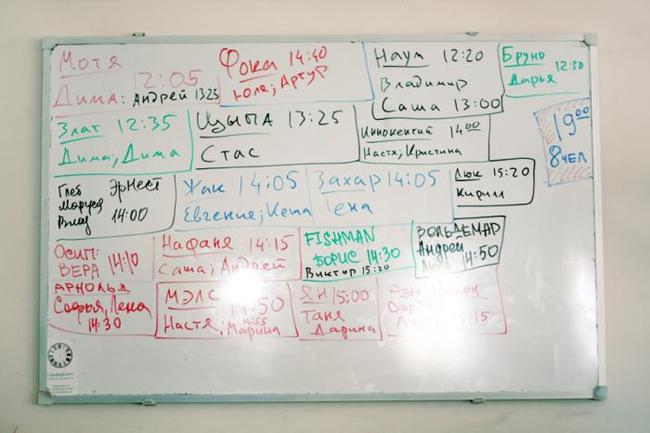 Мотя
12:05
Дима: Андрей 13:25
Фока 14:40
Юля; Артур
Наум 12:20
Владимир
Саша 13:00
Бруно
Дарья 12:30
Злат 12:35
Дима; Дима
Цыпа 13:25
Стас
Иннокентий 14:00
Настя; Кристина
19:00
8 чел
Глеб Эрнест
Маруся
Влад 14:00
Жак 14:05
Евгения;
Захар 14:05
Лена
Люк 15:20
Кирилл
Осип: 14:10
Вера
Нафаня 14:15
Саша; Андрей
FISHMAN
Борис 14:30
Виктор 15:30
Вольдемар
Андрей
14:50
Арнольд
Софья, Лена
14:30
МЭЛС 14:50
14:55
Настя; Марина
Ян 15:00
Таня
Дарина
15:15